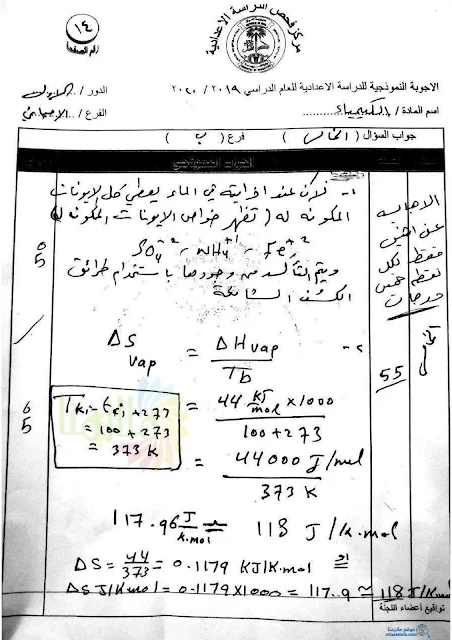 ١٤
رقم الصفحة
مركز فحص الدراسة الاعدادية
الاجوبة النموذجية للدراسة الاعدادية للعام الدراسي ٢٠١٩ / ٢٠٢٠
الدور /
اسم المادة / الكيمياء
الفرع / الاحيائي
جواب السؤال ( الخامس ) فرع ( ب )
الجواب النموذجي
١- لأن عند اذابته في الماء يعطي كل الايونات
المكونة له ( تظهر خواص الايونات المكونة له )
SO₄⁻² ~ NH₄⁺¹ ~ Fe⁺²
ويتم التأكد من وجودها باستخدام طرائق
الكشف الشائعة
الاجابة
عن اثنين
فقط لكل
نقطة خمس
درجات
5
٢-
ΔS vap = ΔHvap / Tb
55
T(K) = t(c) + 273
= 100 + 273
= 373 K
= 44 KJ/mol × 1000 / 100 + 273
= 44000 J/mol / 373 K
5
117.96 J/K.mol ≈ 118 J/K.mol
او
ΔS = 44/373 = 0.1179 KJ/K.mol
ΔS J/K.mol = 0.1179 × 1000 = 117.9 ≈ 118 J/K.mol
تواقيع أعضاء اللجنة
موقع ملازمنا